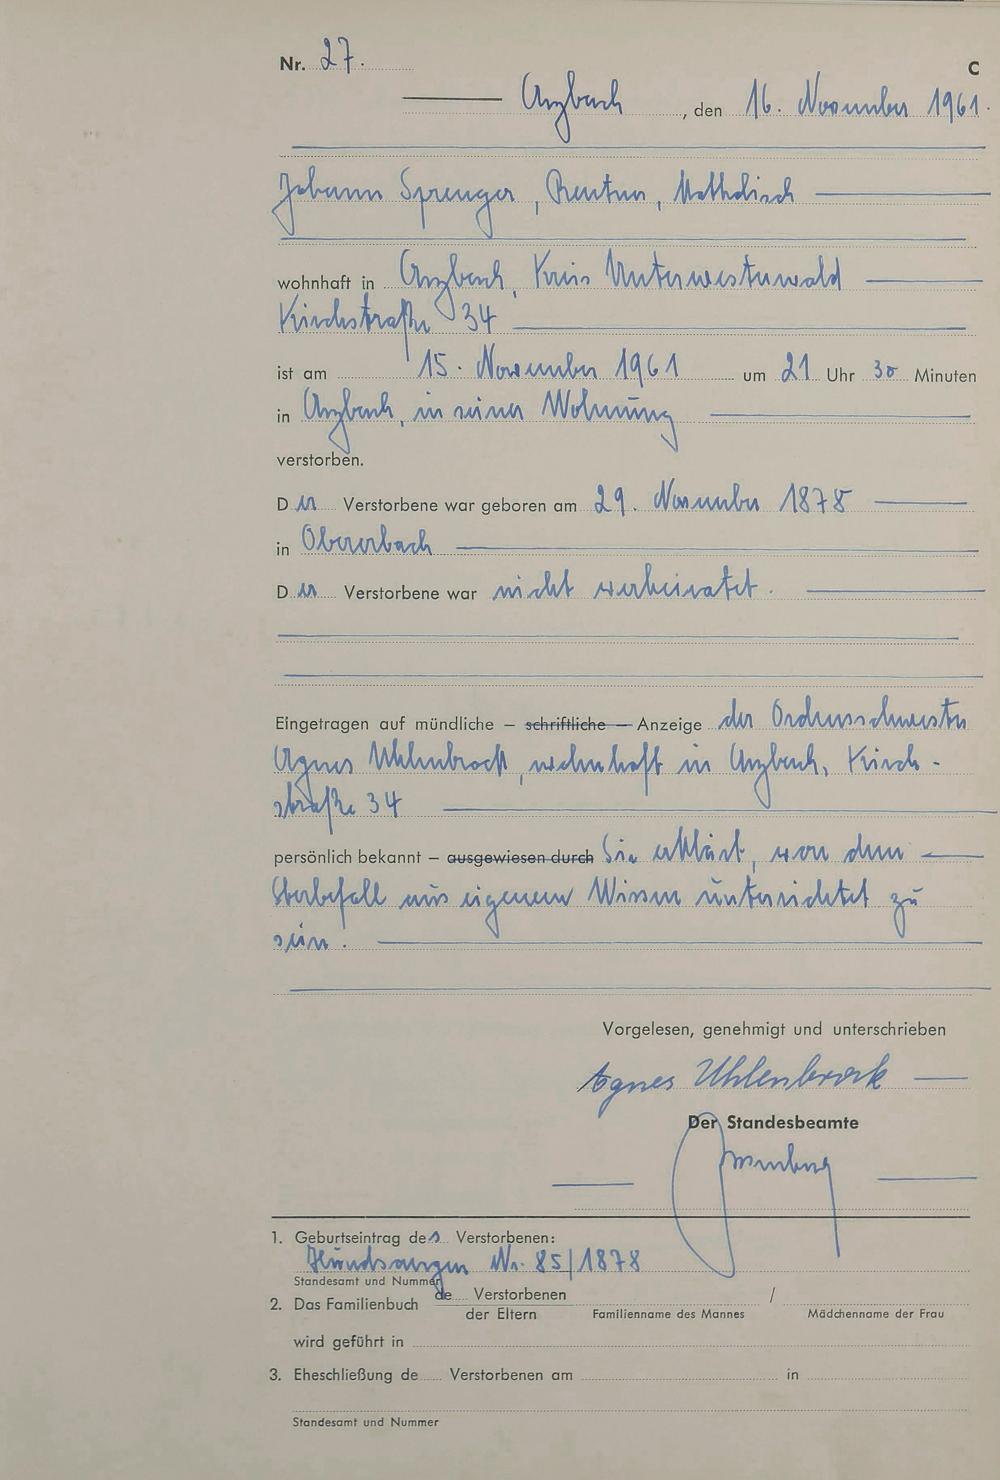 Nr. 27. C
Arzbach, den 16. November 1961.
Johann Sprenger, Rentner, katholisch
wohnhaft in Arzbach, Kreis Unterwesterwald
Kirchstraße 34
ist am 15. November 1961 um 21 Uhr 30 Minuten
in Arzbach, in seiner Wohnung
verstorben.
Der Verstorbene war geboren am 29. November 1878
in Obererbach
Der Verstorbene war nicht verheiratet.
Eingetragen auf mündliche – schriftliche – Anzeige der Ordensschwester
Agnes Uhlenbrock, wohnhaft in Arzbach, Kirch-
straße 34
persönlich bekannt – ausgewiesen durch Sie erklärt, von dem
Sterbefall aus eigenem Wissen unterrichtet zu
sein.
Vorgelesen, genehmigt und unterschrieben
Agnes Uhlenbrock
Der Standesbeamte
1. Geburtseintrag des Verstorbenen:
Hundsangen Nr. 85/1878
Standesamt und Nummer
2. Das Familienbuch de Verstorbenen /
der Eltern Familienname des Mannes Mädchenname der Frau
wird geführt in
3. Eheschließung de Verstorbenen am in
Standesamt und Nummer